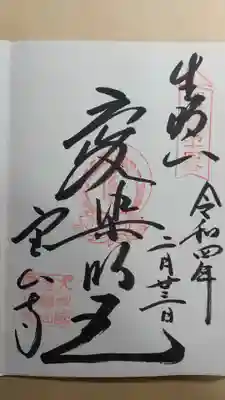 生駒山
令和四年
二月廿三日
愛染明王
宝山寺